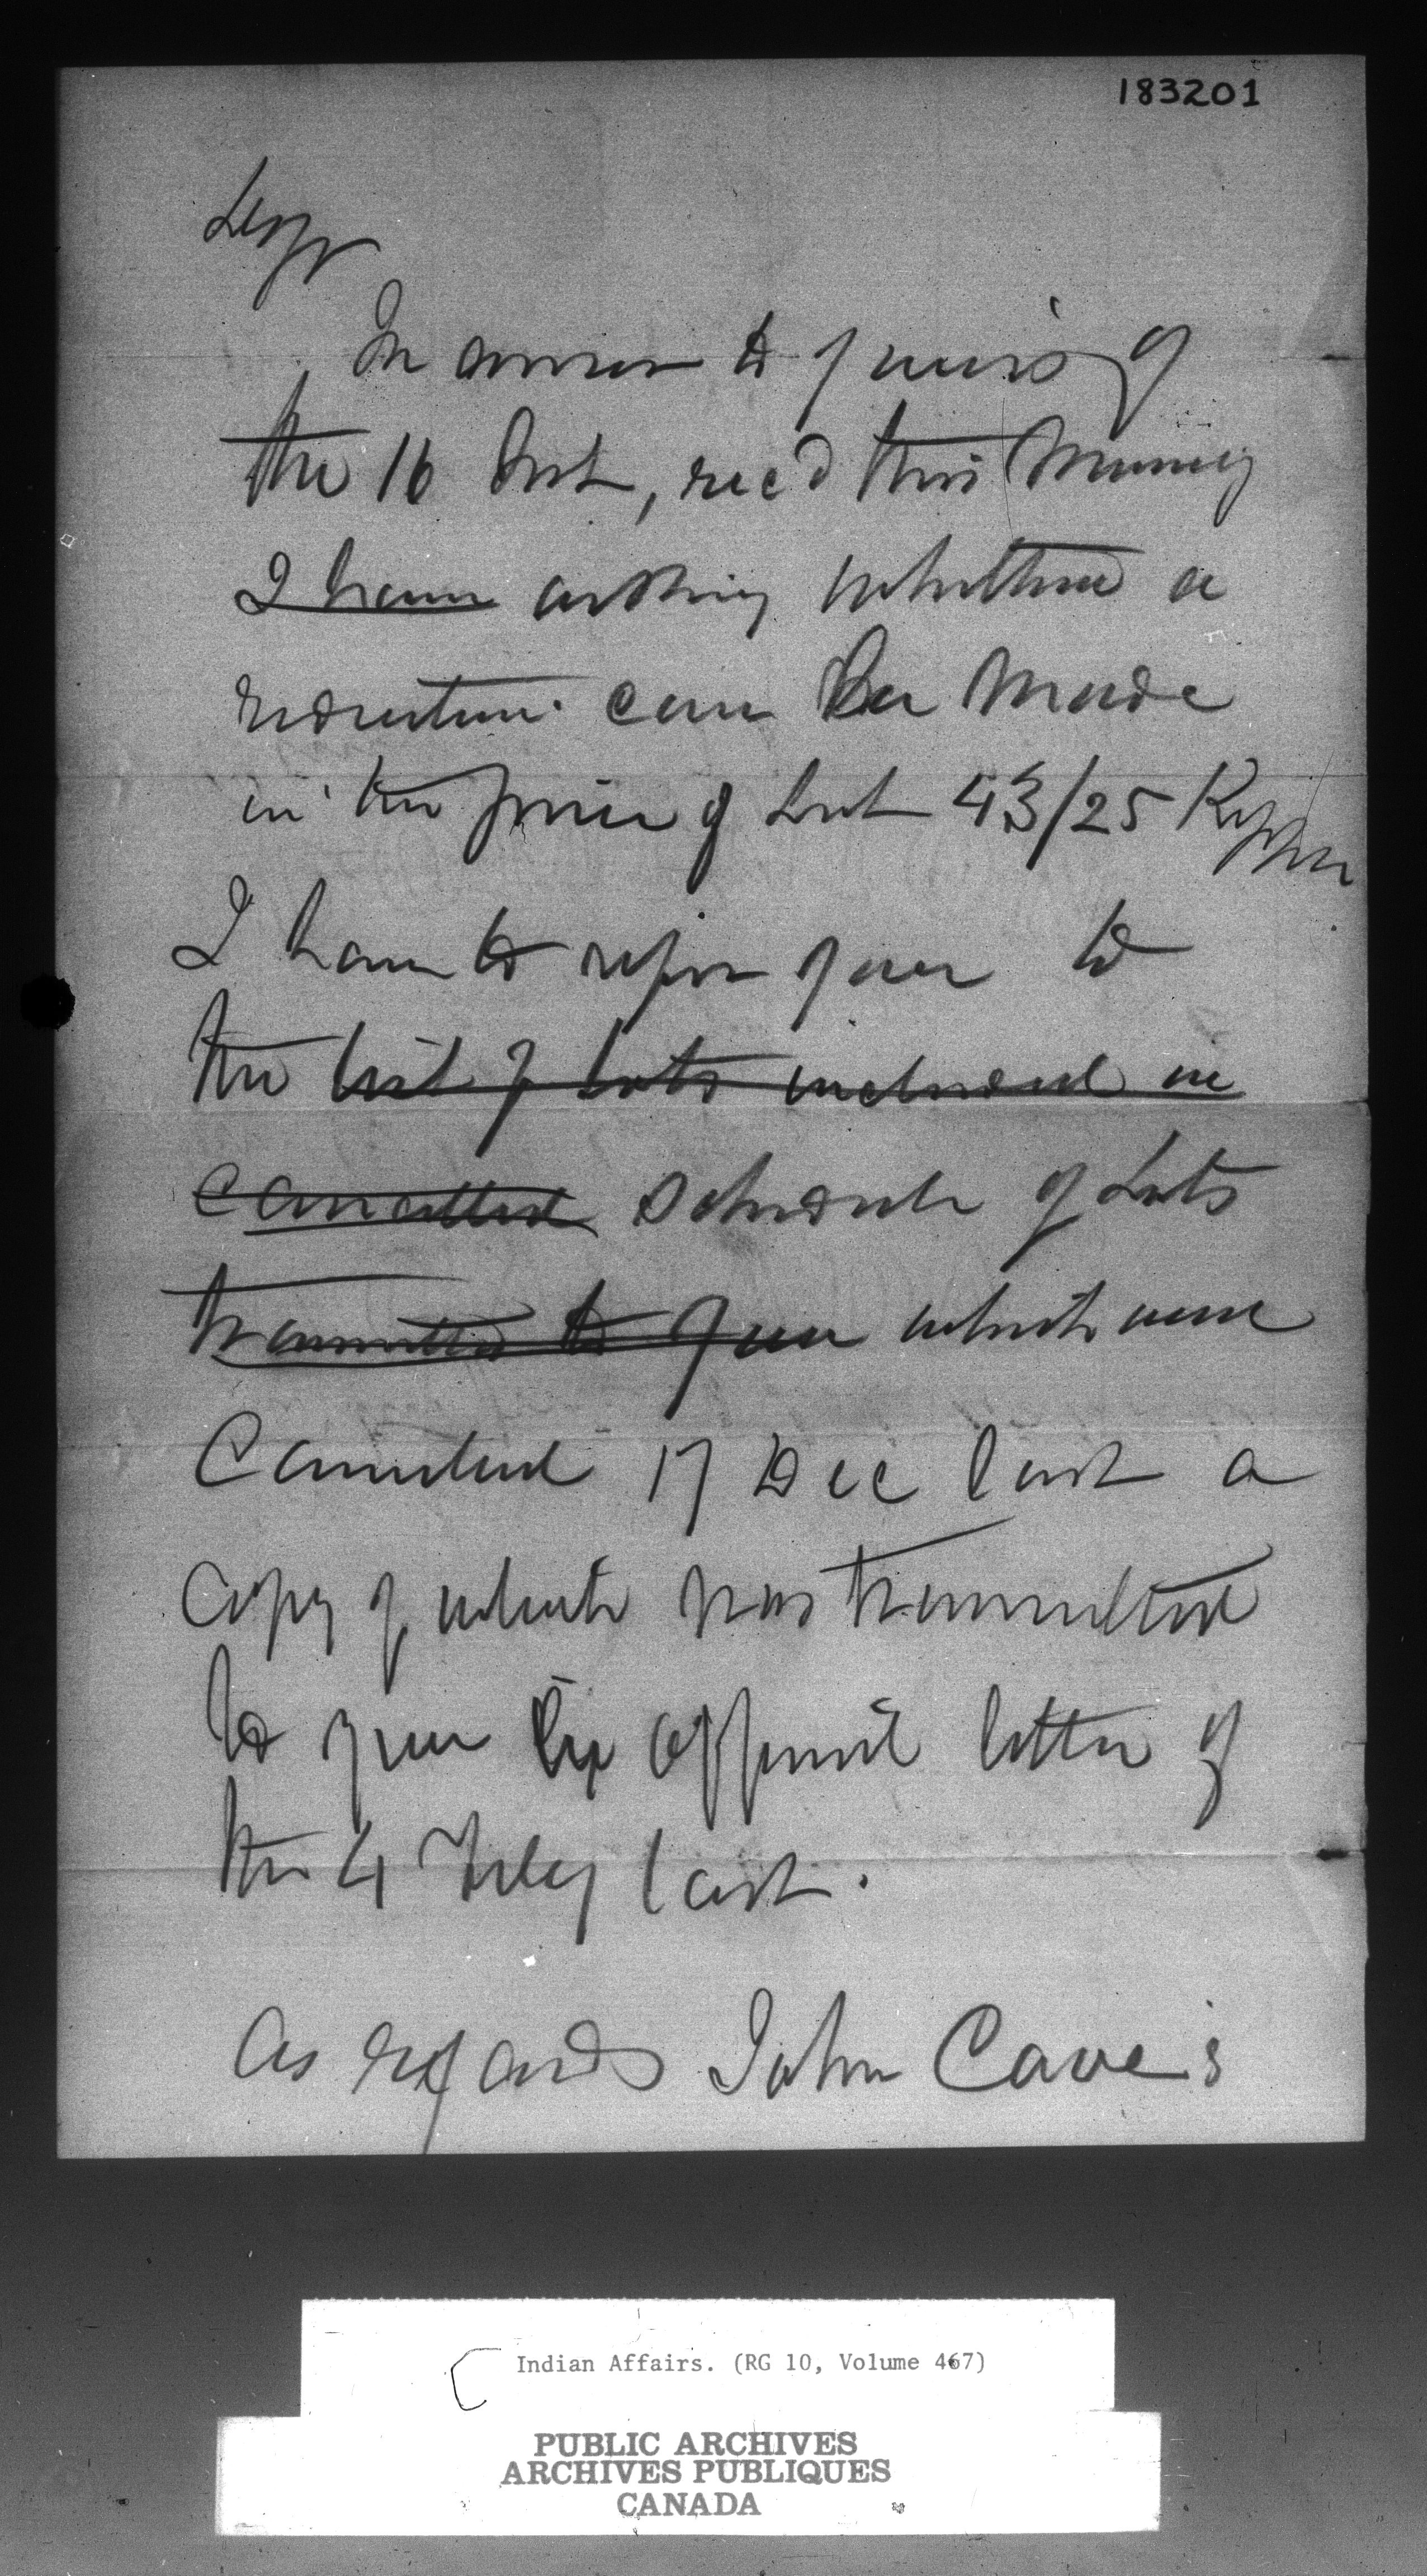 183201
Legge
In answer to yours of
the 16 Inst, rec'd this Morning
I have asking whether a
reduction can be made
in the price of Lot 43/25 Keppel
I have to refer you to
the list of Lots included in
cancelled Schedule of Lots
transmitted to you which were
Cancelled 17 Dec last a
copy of which was transmitted
to you by official letter of
the 4 Feby last.
As regards John Cave's
Indian Affairs. (RG 10, Volume 467)
PUBLIC ARCHIVES
ARCHIVES PUBLIQUES
CANADA